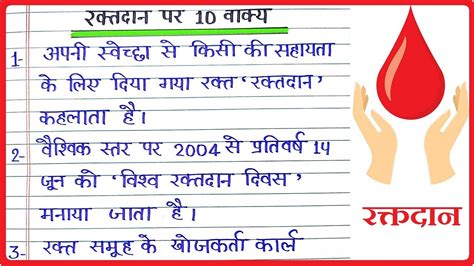 रक्तदान पर 10 वाक्य
1- अपनी स्वेच्छा से किसी की सहायता
के लिए दिया गया रक्त ‘रक्तदान’
कहलाता है।
2- वैश्विक स्तर पर 2004 से प्रतिवर्ष 14
जून को ‘विश्व रक्तदान दिवस’
मनाया जाता है।
3- रक्त समूह के खोजकर्ता कार्ल
रक्तदान